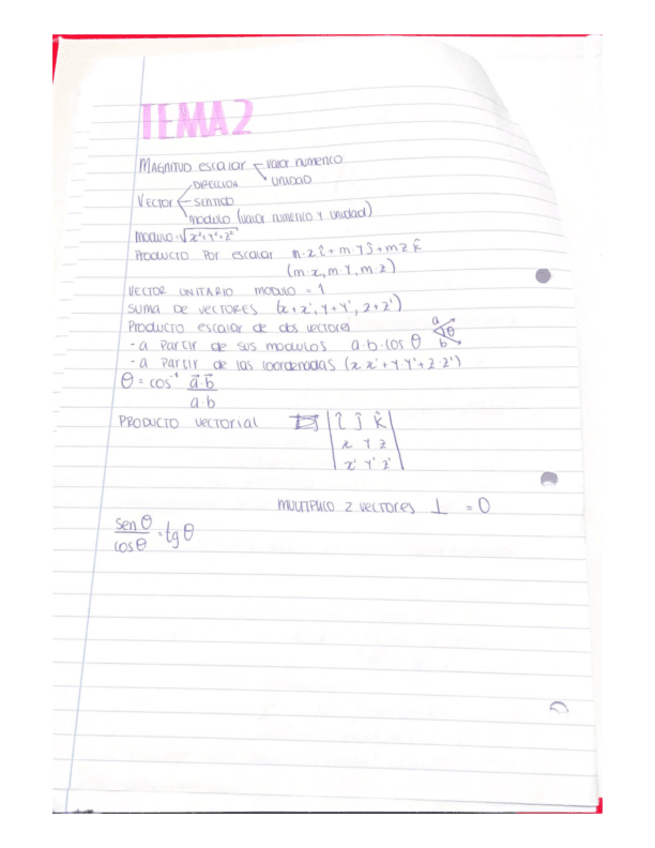 TEMA 2
MAGNITUD escalar valor numerico
UNIDAD
DIRECCION
VECTOR sentido
modulo (valor numerico y unidad)
modulo = √x²+y²+z²
PRODUCTO POR escalar m·x î + m·y ĵ + m z k̂
(m·x, m·y, m·z)
VECTOR UNITARIO MODULO = 1
SUMA DE VECTORES (x+x', y+y', z+z')
PRODUCTO escalar de dos vectores
a θ b
- a PARTIR de sus modulos a·b·cos θ
- a PARTIR de las coordenadas (x x' + y·y' + z·z')
θ = cos⁻¹ a⃗·b⃗
a·b
PRODUCTO vectorial | î ĵ k̂ |
x y z
x' y' z'
MULTIPLICO 2 VECTORES ⊥ = 0
sen θ
cos θ = tg θ